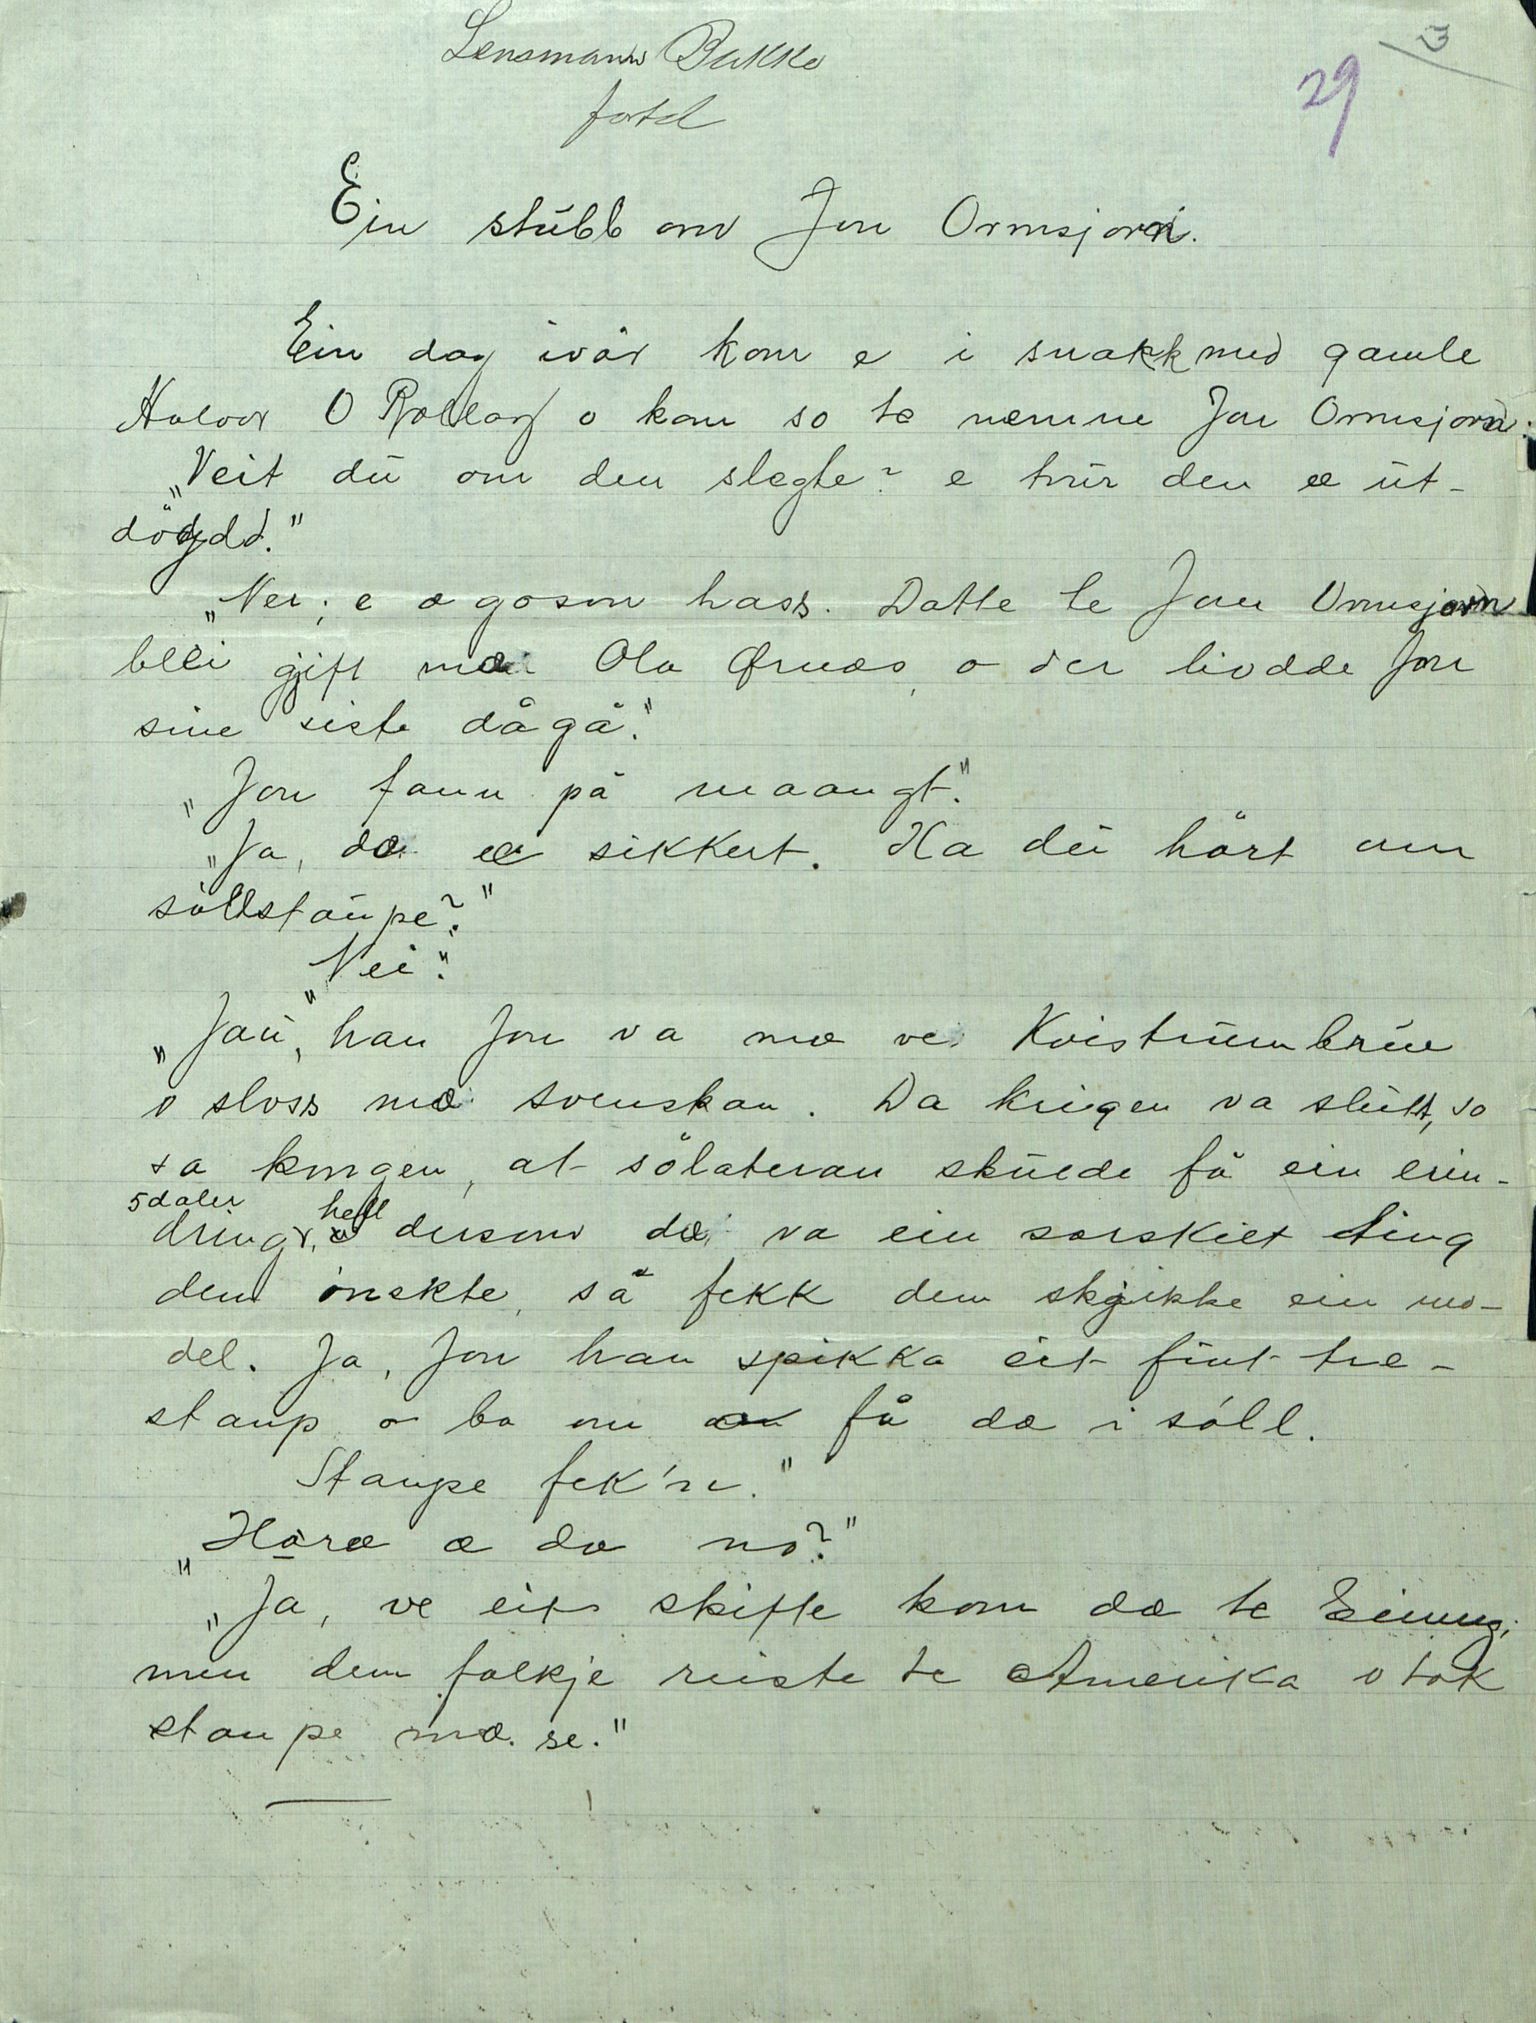 Lensmann Bakke
fortel
29
Ein stubb om Jon Ormsjorn.
Ein dag ivår kom e i snakk med gamle
Halvor O o kom so te nemne Jon Ormsjorn.
„Veit du om den slegte? e trur den æ ut-
döydd."
„Nei; e æ goson hass. Datte te Jon Ormsjorn
blei gjift mæ Ola Ørnæs, o der livdde Jon
sine siste dågå."
„Jon fann på maangt."
„Ja, dæ æ sikkert. Ha du hört om
söllstaupe?"
„Nei."
„Jau, han Jon va mæ ve Kvistrumbrue
o sloss mæ svenskan. Da krigen va slutt, so
sa kongen, at sölateran skulde få ein erin-
5 daler hell
dring, dersom dæ va ein sørskilt ting
dem önskte, så fekk dem skjikke ein mo-
del. Ja, Jon han spikka eit fint tre-
staup o ba om få dæ i söll.
Staupe fek'n."
„Håræ æ dæ no?"
„Ja, ve eit skifte kom dæ te
men dem folkje reiste te Amerika o tok
staupe mæ se."